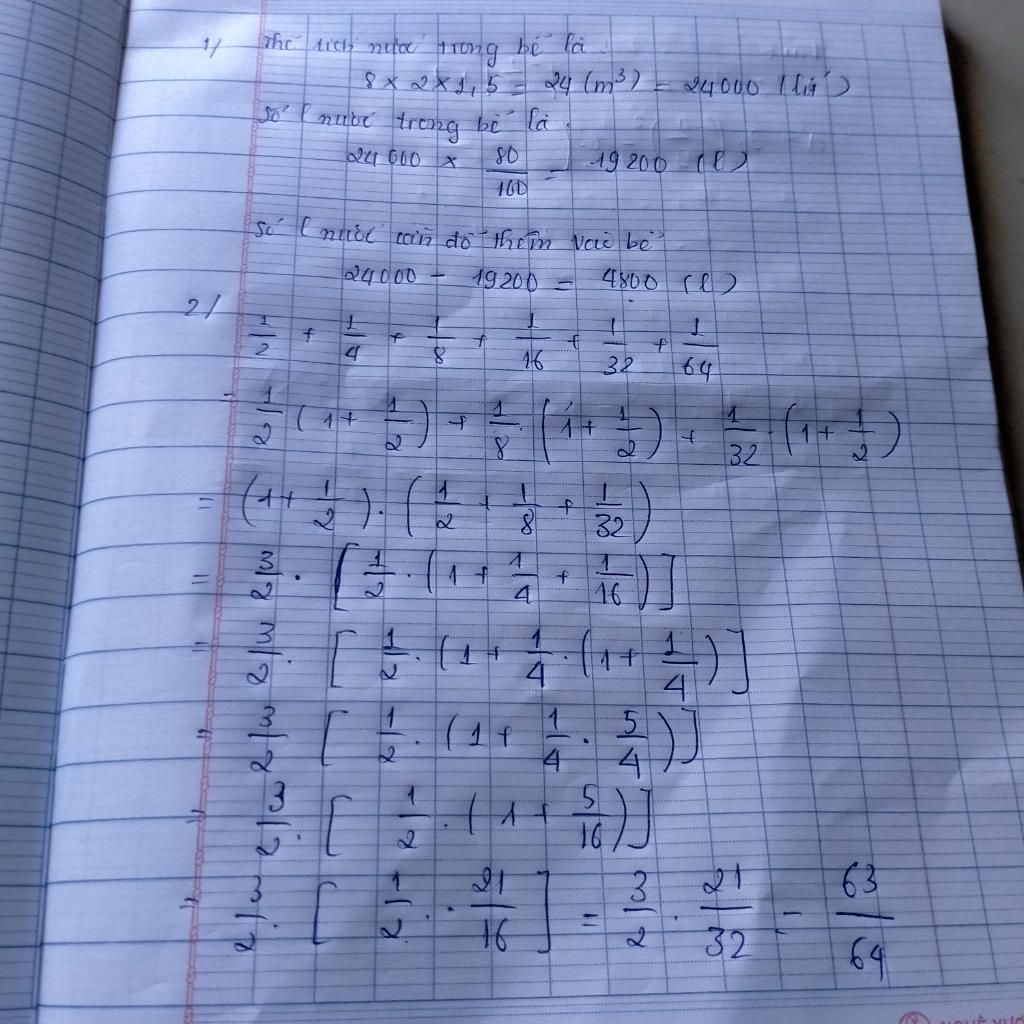 1/ Thể tích nước trong bể là
8 × 2 × 1,5 = 24 (m³) = 24000 (lít)
số l nước trong bể là
24000 × 80/100 = 19200 (l)
số l nước cần đổ thêm vào bể
24000 - 19200 = 4800 (l)
2/
1/2 + 1/4 + 1/8 + 1/16 + 1/32 + 1/64
= 1/2 (1 + 1/2) + 1/8 . (1 + 1/2) + 1/32 . (1 + 1/2)
= (1 + 1/2) . (1/2 + 1/8 + 1/32)
= 3/2 . [1/2 . (1 + 1/4 + 1/16)]
= 3/2 . [1/2 . (1 + 1/4 . (1 + 1/4)]
= 3/2 [1/2 . (1 + 1/4 . 5/4)]
= 3/2 . [1/2 . (1 + 5/16)]
= 3/2 . [1/2 . . 21/16] = 3/2 . 21/32 = 63/64